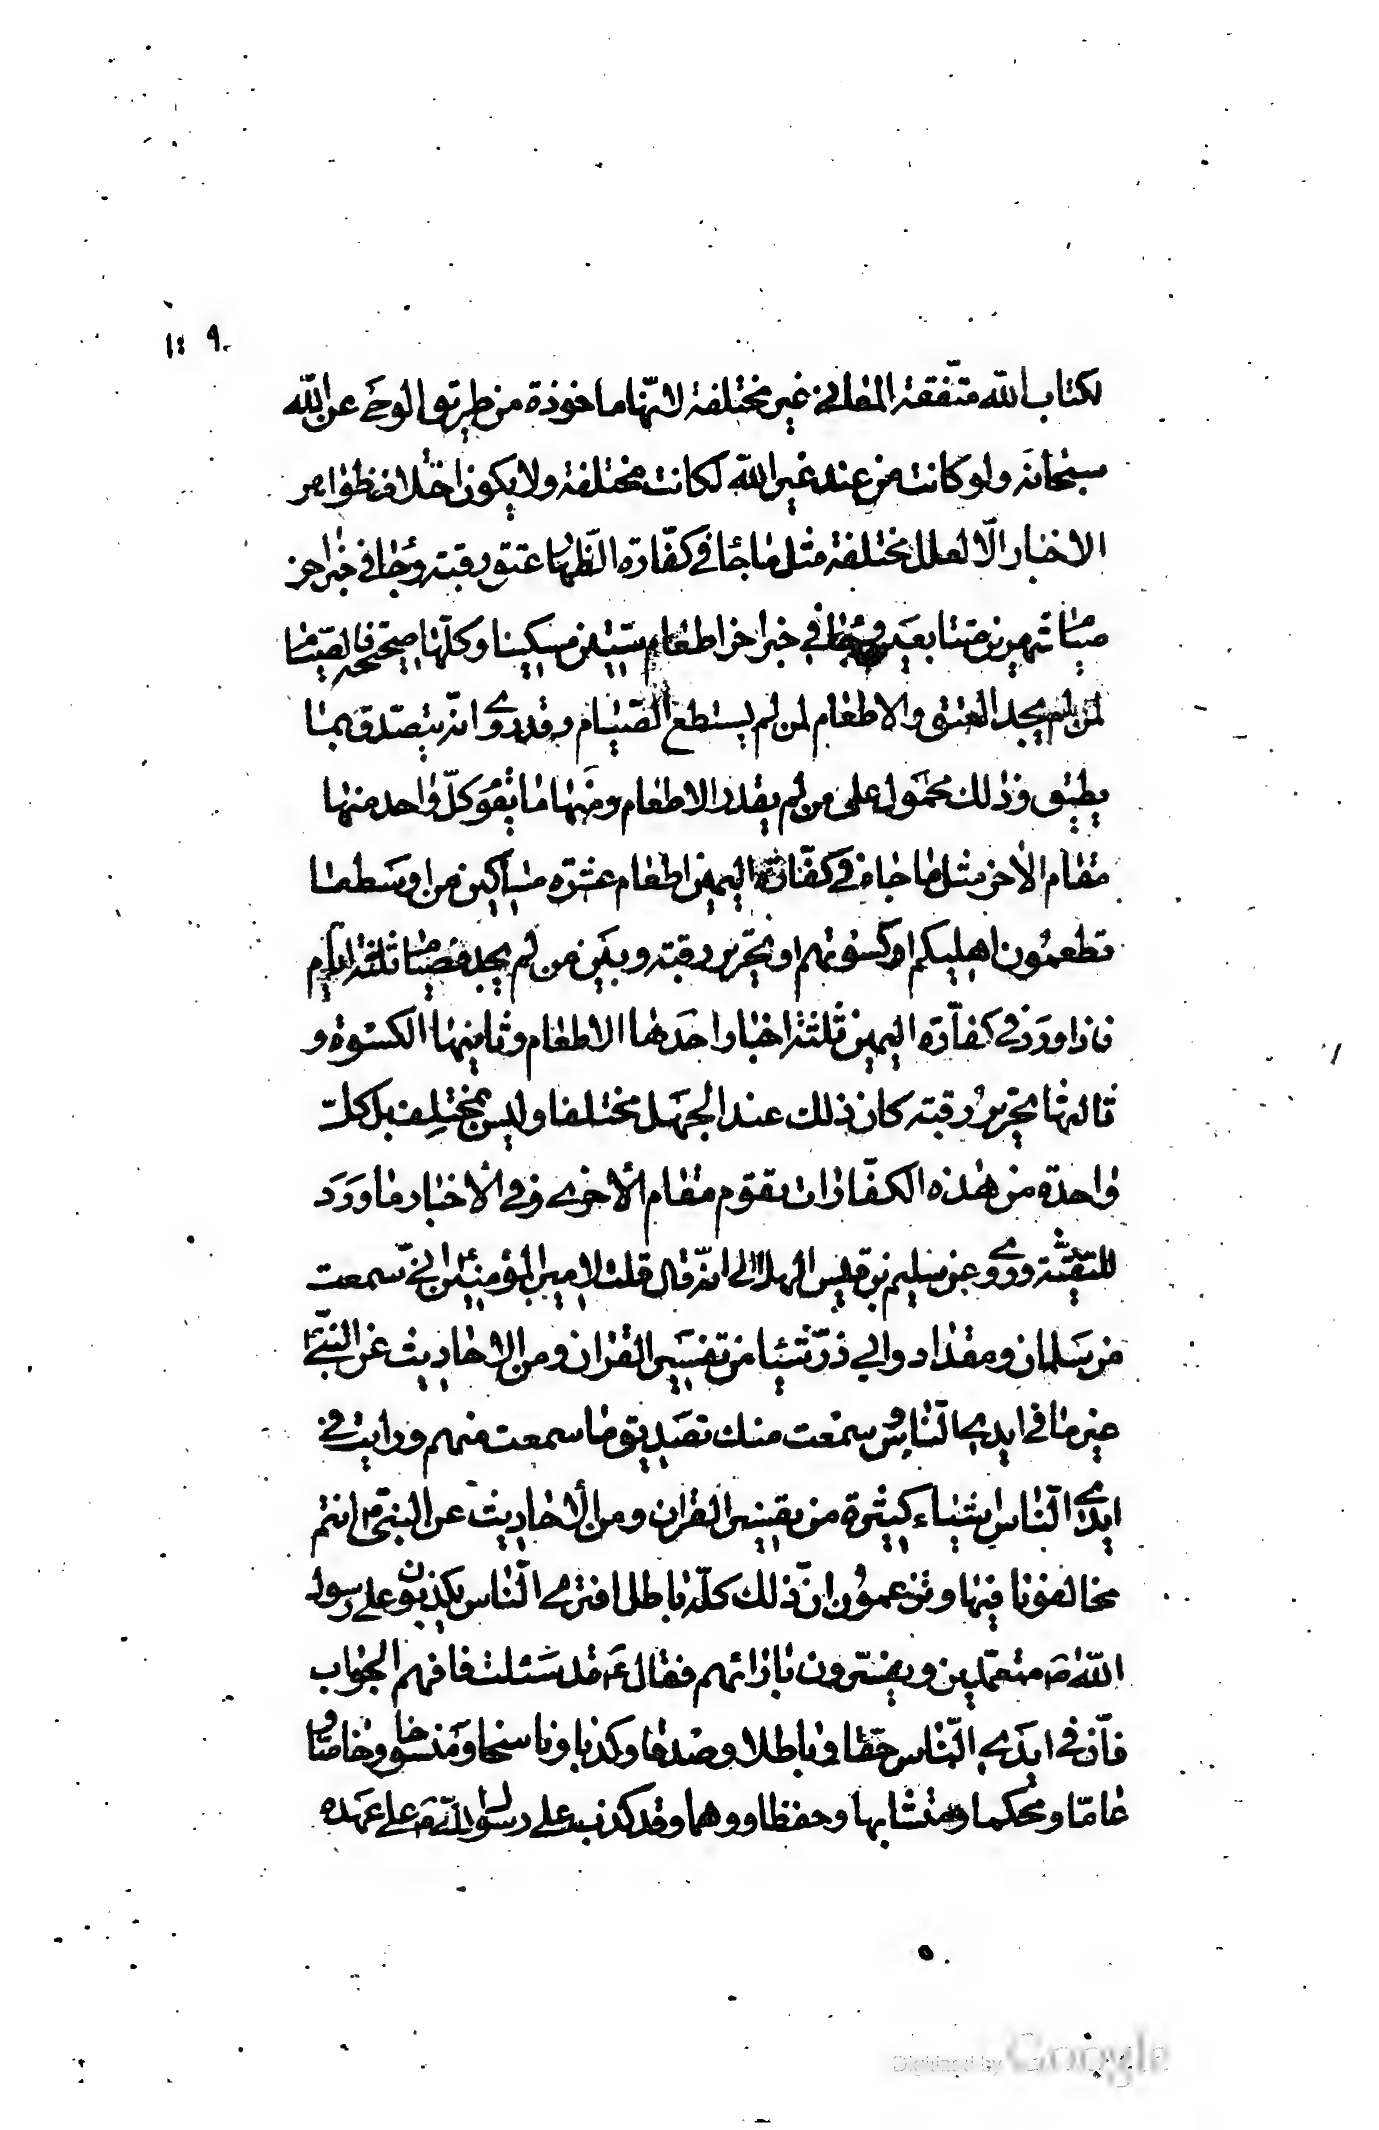 ٩٠ ١٤
لكتاب الله متّفقة المعاني غير مختلفة لانّها ماخوذة من طريق الوحي عن الله
سبحانه ولو كانت من عند غير الله لكانت مختلفة ولا يكون اختلاف ظواهر
الاخبار الّا لعلل مختلفة مثل ما جاء في كفّارة الظّهار عتق رقبة وجاء في خبر اخر
صيام شهرين متتابعين وجاء في خبر اخر اطعام ستين مسكينا وكلّها صحيحة فالصّيام
لمن لم يجد العتق والاطعام لمن لم يستطع الصّيام وقد روي انّه يتصدّق بما
يطيق وذلك محمول على من لم يقدر الاطعام ومنها ما يقوم كلّ واحد منها
مقام الاخر مثل ما جاء في كفّارة اليمين اطعام عشرة مساكين من اوسط ما
تطعمون اهليكم او كسوتهم او تحرير رقبة وبين من لم يجد فصيام ثلثة ايام
فاذا ورد في كفّارة اليمين ثلثة اخبار احدها الاطعام وثانيها الكسوة و
ثالثها تحرير رقبة كان ذلك عند الجهل مختلفا وليس بمختلف بل كلّ
واحدة من هذه الكفّارات يقوم مقام الأخرى وفي الأخبار ما ورد
للتقيّة وروي عن سليم بن قيس الهلالي انّه قال قلت لامير المؤمنين انّي سمعت
من سلمان ومقداد وابي ذرّ شيئا من تفسير القران ومن الاحاديث عن النبيّ
غير ما في ايدي النّاس وسمعت منك تصديق ما سمعت منهم ورايت في
ايدي النّاس اشياء كثيرة من تفسير القران ومن الأحاديث عن النبيّ انتم
مخالفونا فيها وتزعمون انّ ذلك كلّه باطل افترى النّاس يكذبون على رسول
اللهص متعمّدين ويفسّرون بارائهم فقال ع قد سئلت فافهم الجواب
فانّ في ايدي النّاس حقّا وباطلا وصدقا وكذبا وناسخا ومنسوخا وخاصّا و
عامّا ومحكما ومتشابها وحفظا ووهما وقد كذب على رسول اللهص على عهده
Digitized by Google